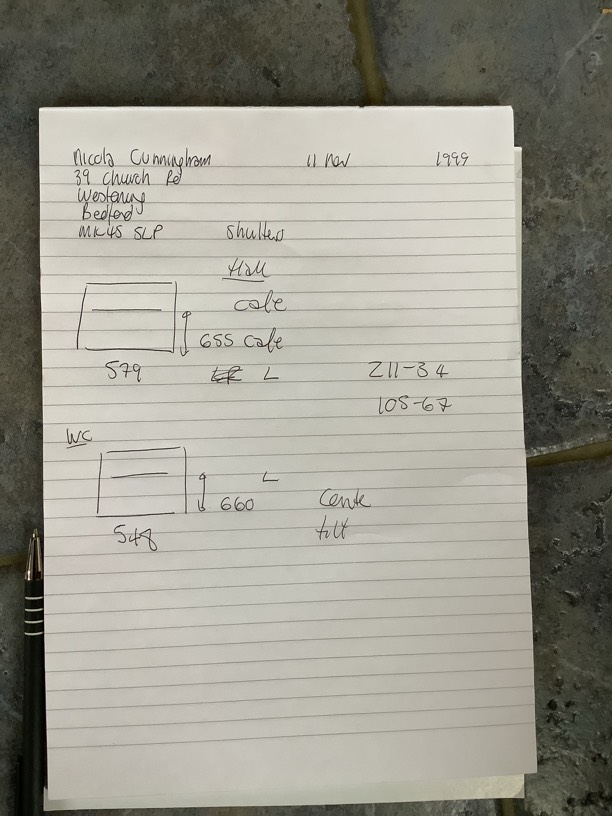 Nicola Cunningham 11 Nov 1999
39 Church Rd
Westoning
Bedford
MK45 5LP Shutters
Hall
cafe
655 cafe
579 L 211-34
105-67
WC
L
660 Centre
548 tilt